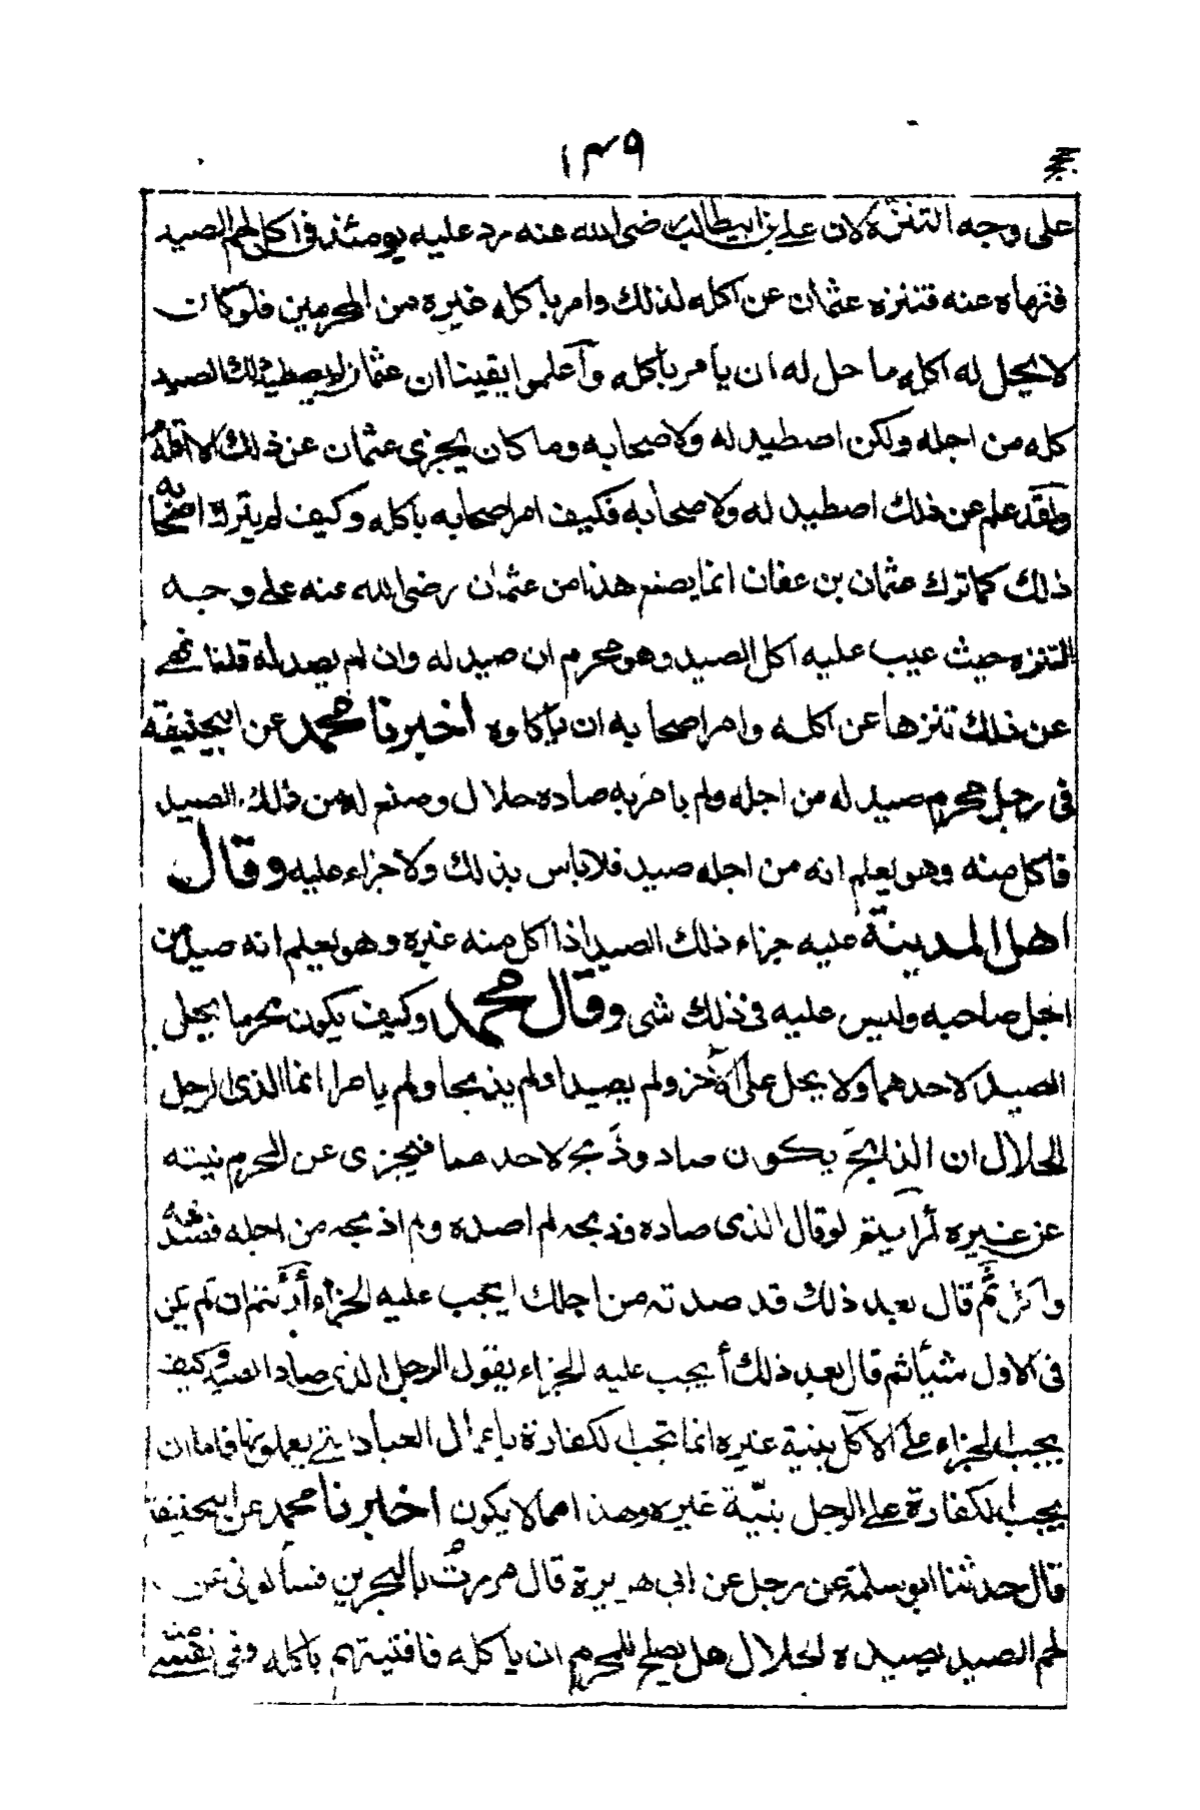 ١٣٩
على وجه التنزه لان علي بن ابيطالب رضى الله عنه رد عليه يومئذ فى اكل لحم الصيد
فنهاه عنه فتنزه عثمان عن اكله لذلك وامر باكله غيره من المحرمين فلو كان
لا يحل له اكله ما حل له ان يأمر باكله وآعلموا يقينا ان عثمان لم يصطد ذلك الصيد
كله من اجله ولكن اصطيد له ولاصحابه وما كان يجزى عثمان عن ذلك الا اقله
ولقد علم عن ذلك اصطيد له ولاصحابه فكيف امر اصحابه باكله وكيف لم يترك اصحابه
ذلك كما ترك عثمان بن عفان انما يصنع هذا من عثمان رضى الله عنه على وجه
التنزه حيث عيب عليه اكل الصيد وهو محرم ان صيد له وان لم يصد له قلنا نهى
عن ذلك تنزها عن اكله وامر اصحابه ان يأكلوه اخبرنا محمد عن ابيحنيفة
فى رجل محرم صيد له من اجله ولم يامر به صاده حلال وصنع له من ذلك الصيد
فاكل منه وهو يعلم انه من اجله صيد فلا باس بذلك ولا جزاء عليه وقال
اهل المدينة عليه جزاء ذلك الصيد اذا اكل منه غيره وهو يعلم انه صيد من
اجل صاحبه وليس عليه فى ذلك شى وقال محمد وكيف يكون محرما يحل
الصيد لاحدهما ولا يحل على الآخر ولم يصيدا ولم يذبحا ولم يامرا انما الذى الرجل
الحلال ان الذابح يكون صاد وذبح لاحدهما فيجزى عن المحرم نيته
عن غيره أرأيتم لو قال الذى صاده وذبحه لم اصده ولم اذبحه من اجله فصدقه
وآكل ثم قال بعد ذلك قد صدته من اجلك ايجب عليه الجزاء أرأيتم ان لم يكن
فى الاول شيأ ثم قال بعد ذلك أيجب عليه الجزاء بقول الرجل الذى صاد الصيد وكيف
يجب الجزاء على الآكل بنية غيره انما تجب الكفارة باعمال العباد التى يعملونها فاما ان
يجب الكفارة على الرجل بنيّة غيره وهذا مما لا يكون اخبرنا محمد عن ابيحنيفة
قال حدثنا ابو سلمة عن رجل عن ابى هريرة قال مررتُ بالبحرين فسألونى عن
لحم الصيد يصيده الحلال هل يصلح للمحرم ان ياكله فافتيتهم باكله وفى نفسى منه